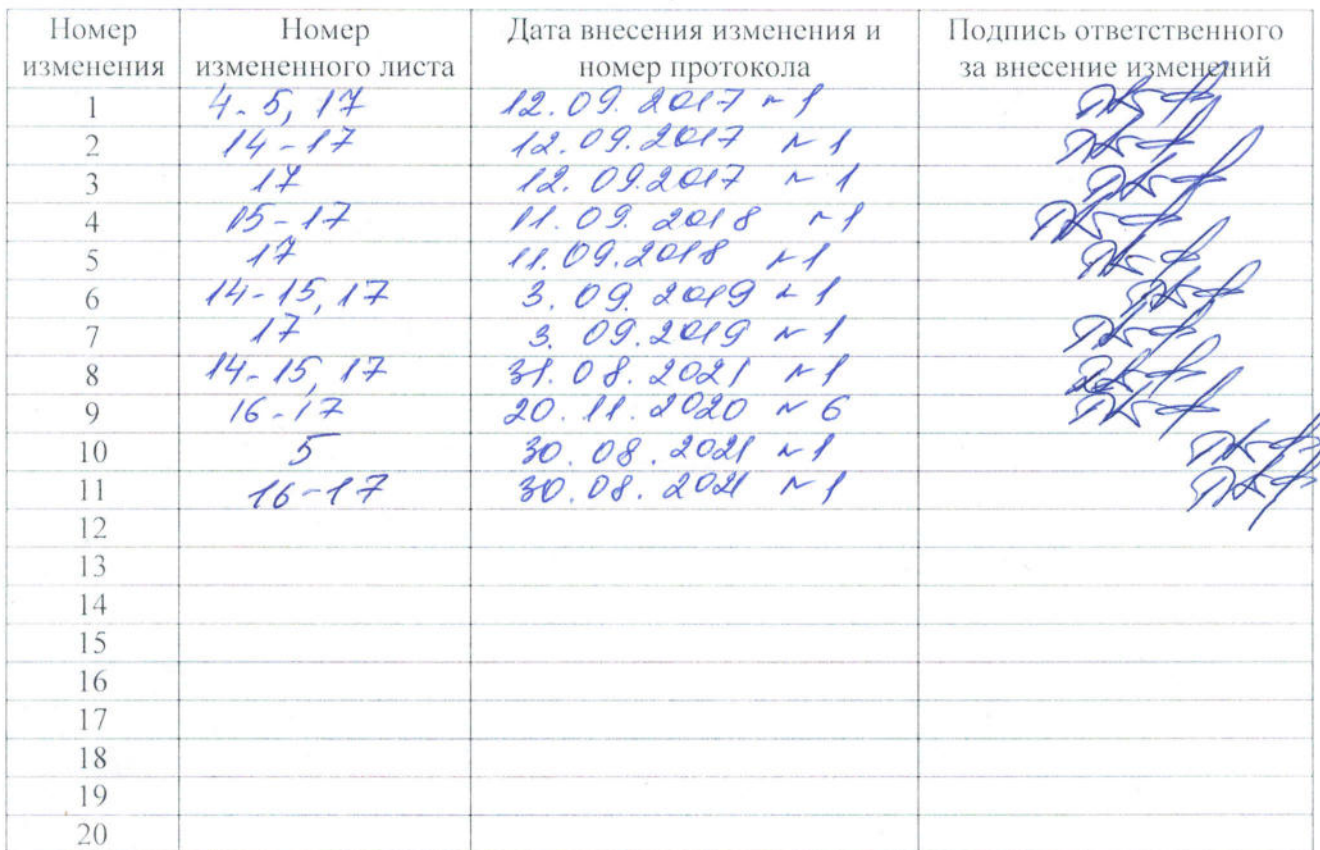 Номер изменения Номер измененного листа Дата внесения изменения и номер протокола Подпись ответственного за внесение изменений
1 4-5, 17 12.09.2017 №1
2 14-17 12.09.2017 №1
3 17 12.09.2017 №1
4 15-17 11.09.2018 №1
5 17 11.09.2018 №1
6 14-15, 17 3.09.2019 №1
7 17 3.09.2019 №1
8 14-15, 17 31.08.2021 №1
9 16-17 20.11.2020 №6
10 5 30.08.2021 №1
11 16-17 30.08.2021 №1
12
13
14
15
16
17
18
19
20